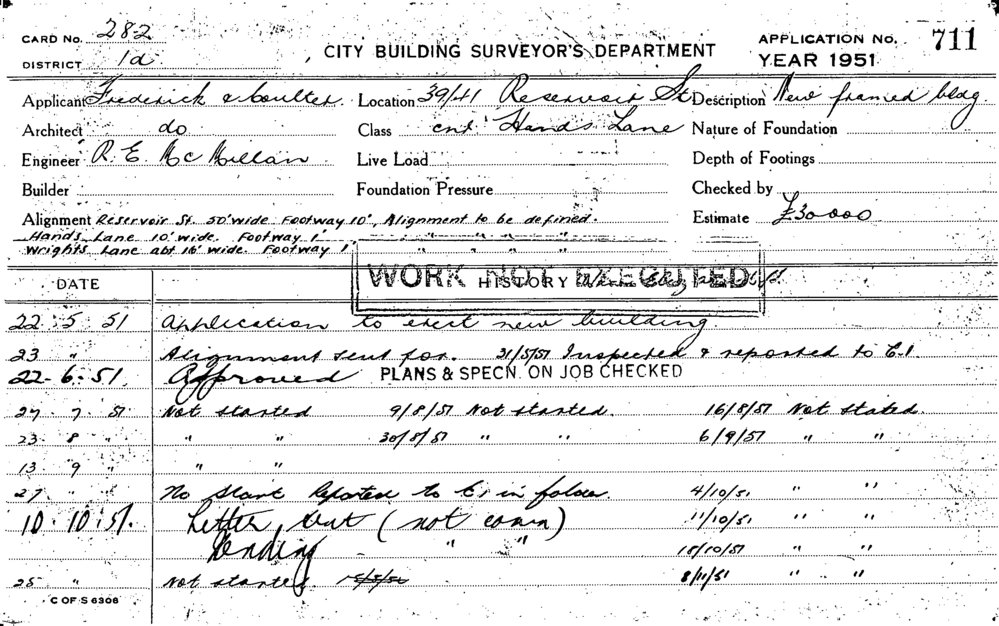 CARD No. 282
DISTRICT 1d
CITY BUILDING SURVEYOR'S DEPARTMENT
APPLICATION No. 711
YEAR 1951
Applicant Frederick & Coulter. Location 39/41 Reservoir St Description New framed bldg.
Architect do Class cnr Hands Lane Nature of Foundation
Engineer R. E. McMillan Live Load Depth of Footings
Builder Foundation Pressure Checked by
Alignment Reservoir St. 50' wide Footway 10', Alignment to be defined. Estimate £30000
Hands Lane 10' wide. Footway 1' " " " "
Wrights Lane abt 16' wide. Footway 1' " " " "
WORK NOT EXECUTED
DATE HISTORY
22 . 5 . 51 Application to erect new building
23 " Alignment sent for. 31/5/51 Inspected & reported to C.I
22 - 6 . 51. Approved PLANS & SPECN. ON JOB CHECKED
27 . 7 . 51 Not started 9/8/51 Not started. 16/8/51 Not stated.
23 . 8 " " " 30/8/51 " " 6/9/51 " "
13 . 9 " " "
27 " " No start Reported to C.I in folder. 4/10/51 " "
10 . 10 . 51. Letter, out (not comm) 11/10/51 " "
Pending " " 18/10/51 " "
25 " Not started. 15/5/52 8/11/51 " "
C OF S 6306